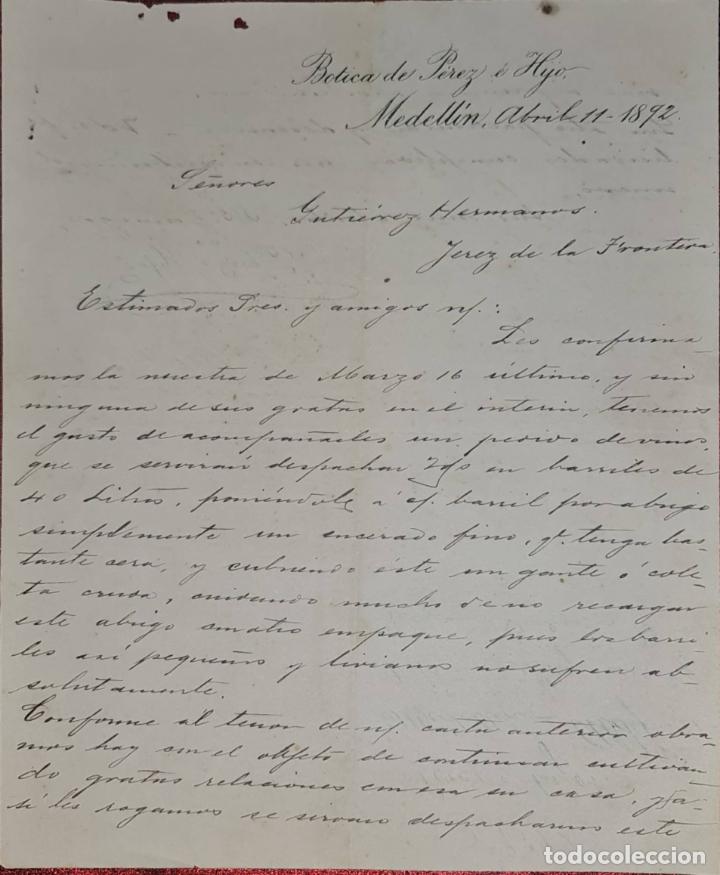 Botica de Pérez é Hijo.
Medellín, Abril 11-1892.
Señores
Gutiérrez Hermanos.
Jerez de la Frontera.
Estimados Sres. y amigos n/.:
Les confirma-
mos la nuestra de Marzo 16 último, y sin
ninguna de sus gratas en el interin, tenemos
el gusto de acompañarles un pedido de vinos,
que se servirán despachar en barriles de
40 Litros, poniéndole á c/. barril por abrigo
simplemente un encerado fino, qe. tenga bas-
tante cera, y cubriendo éste un gante ó cole-
ta cruda, cuidando mucho de no recargar
este abrigo con otro empaque, pues los barri-
les así pequeños y livianos no sufren ab-
solutamente.
Conforme al tenor de n/. carta anterior obra-
mos hoy con el objeto de continuar cultivan
do gratas relaciones con esa su casa,
si les rogamos se sirvan despacharnos este
todocoleccion
todocoleccion.net